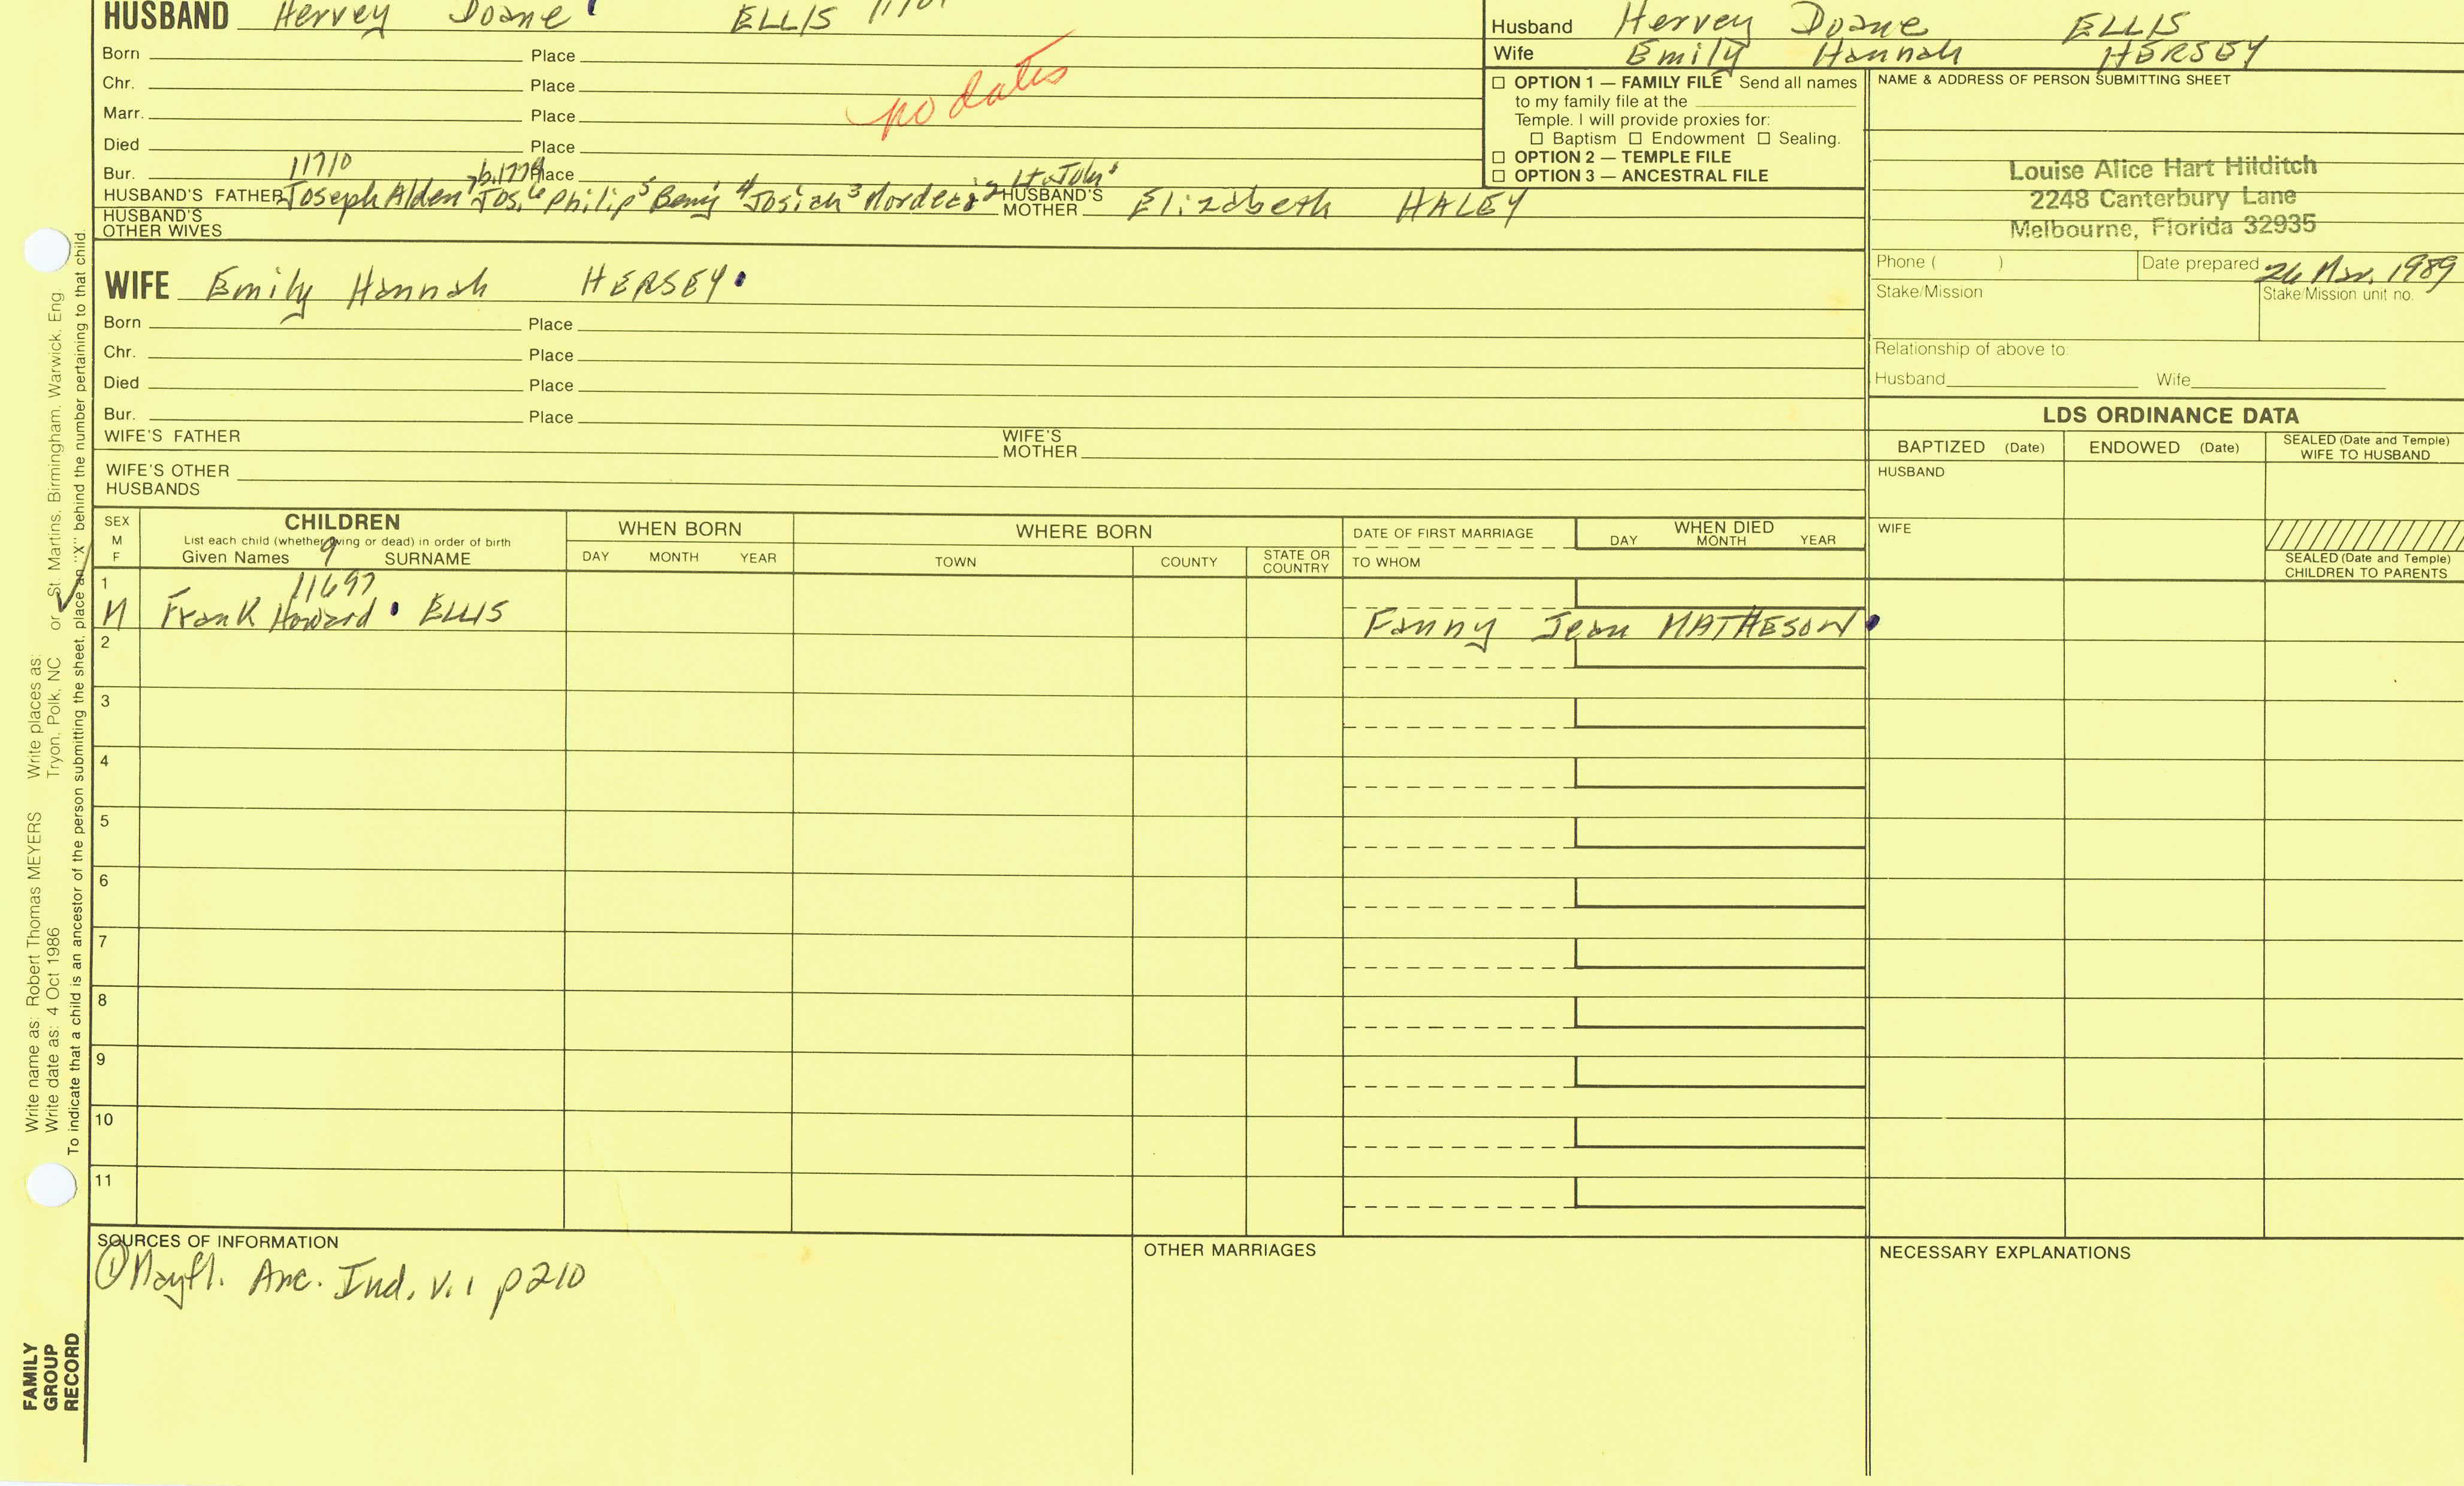 HUSBAND Hervey Doane ELLIS
Husband Hervey Doane ELLIS
Wife Emily Hannah HERSEY
Born Place
Chr. Place
Marr. Place
Died Place
Bur. Place
no dates
11710 b.1779
HUSBAND'S FATHER Joseph Alden 7 Jos. 6 Philip 5 Benj 4 Josiah 3 Mordecai 2 Lt. John 1
HUSBAND'S MOTHER Elizabeth HALEY
HUSBAND'S OTHER WIVES
☐ OPTION 1 — FAMILY FILE Send all names
to my family file at the
Temple. I will provide proxies for:
☐ Baptism ☐ Endowment ☐ Sealing.
☐ OPTION 2 — TEMPLE FILE
☐ OPTION 3 — ANCESTRAL FILE
NAME & ADDRESS OF PERSON SUBMITTING SHEET
Louise Alice Hart Hilditch
2248 Canterbury Lane
Melbourne, Florida 32935
Phone ( ) Date prepared 26 Mar. 1989
Stake/Mission Stake/Mission unit no.
Relationship of above to:
Husband Wife
WIFE Emily Hannah HERSEY
Born Place
Chr. Place
Died Place
Bur. Place
WIFE'S FATHER WIFE'S MOTHER
WIFE'S OTHER HUSBANDS
LDS ORDINANCE DATA
BAPTIZED (Date) ENDOWED (Date) SEALED (Date and Temple) WIFE TO HUSBAND
HUSBAND
WIFE
SEALED (Date and Temple) CHILDREN TO PARENTS
SEX M F
CHILDREN
List each child (whether living or dead) in order of birth
Given Names 9 SURNAME
WHEN BORN
DAY MONTH YEAR
WHERE BORN
TOWN COUNTY STATE OR COUNTRY
DATE OF FIRST MARRIAGE
TO WHOM
WHEN DIED
DAY MONTH YEAR
1 11697
M Frank Howard ELLIS Fanny Jean MATHESON
2
3
4
5
6
7
8
9
10
11
SOURCES OF INFORMATION
① Mayfl. Anc. Ind. V.1 p210
OTHER MARRIAGES
NECESSARY EXPLANATIONS
Write name as: Robert Thomas MEYERS Write places as:
Write date as: 4 Oct 1986 Tryon, Polk, NC or St. Martins, Birmingham, Warwick, Eng
To indicate that a child is an ancestor of the person submitting the sheet, place an "X" behind the number pertaining to that child.
FAMILY
GROUP
RECORD